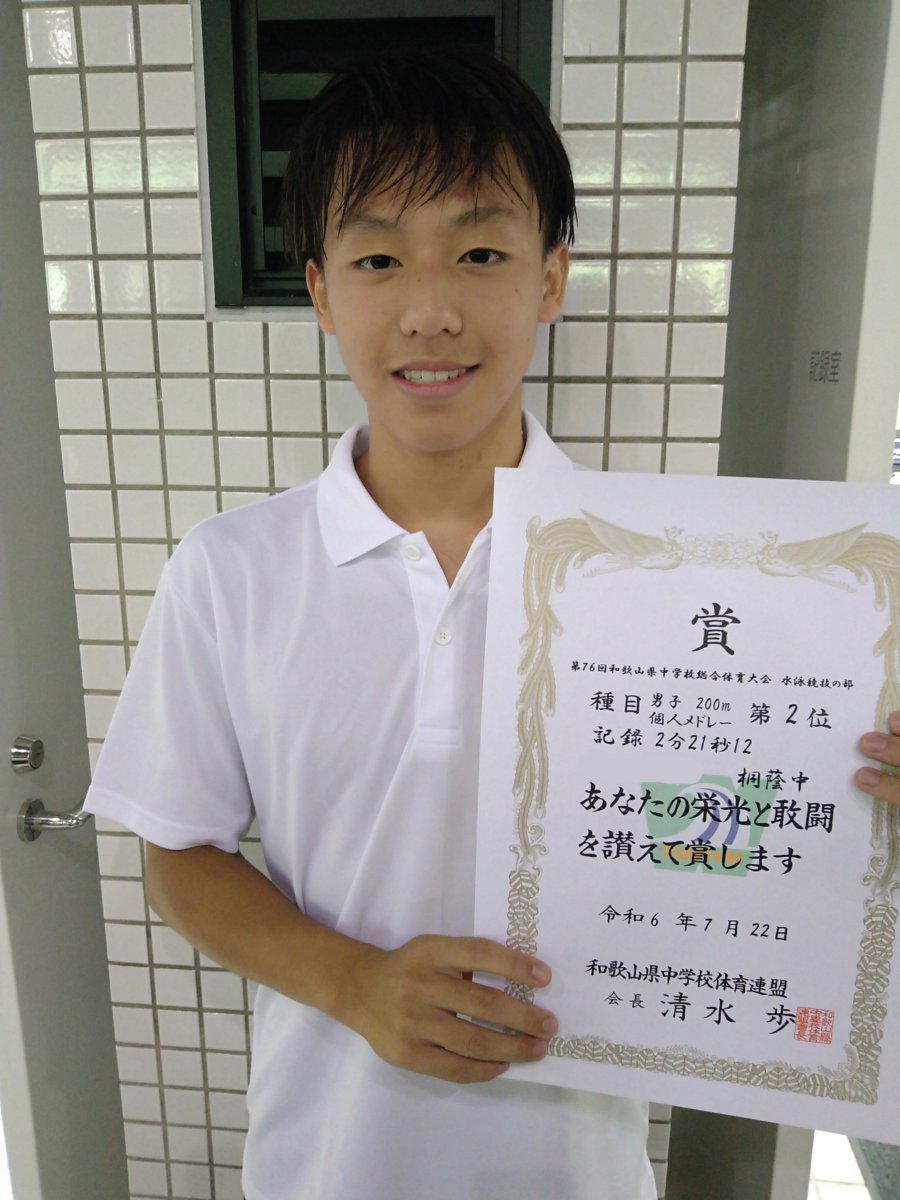 記録室
賞
第76回和歌山県中学校総合体育大会 水泳競技の部
種目 男子 200m 個人メドレー 第2位
記録 2分21秒12
桐蔭中
あなたの栄光と敢闘
を讃えて賞します
令和6年7月22日
和歌山県中学校体育連盟
会長 清水 歩